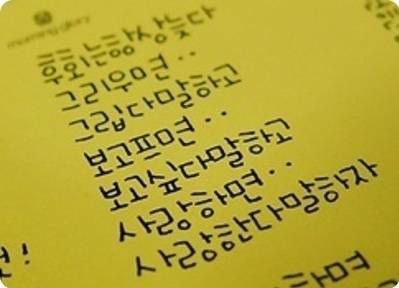 morning glory
후회는항상늦다
그리우면..
그립다말하고
보고프면..
보고싶다말하고
사랑하면..
사랑한다말하자
!
하면